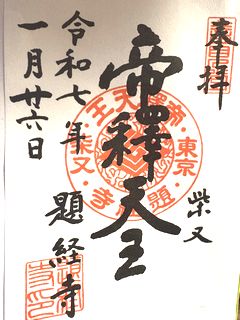 奉拝
柴又
帝釋天王
題経寺
令和七年
一月廿六日
東京
柴又
帝釋天王
題経寺